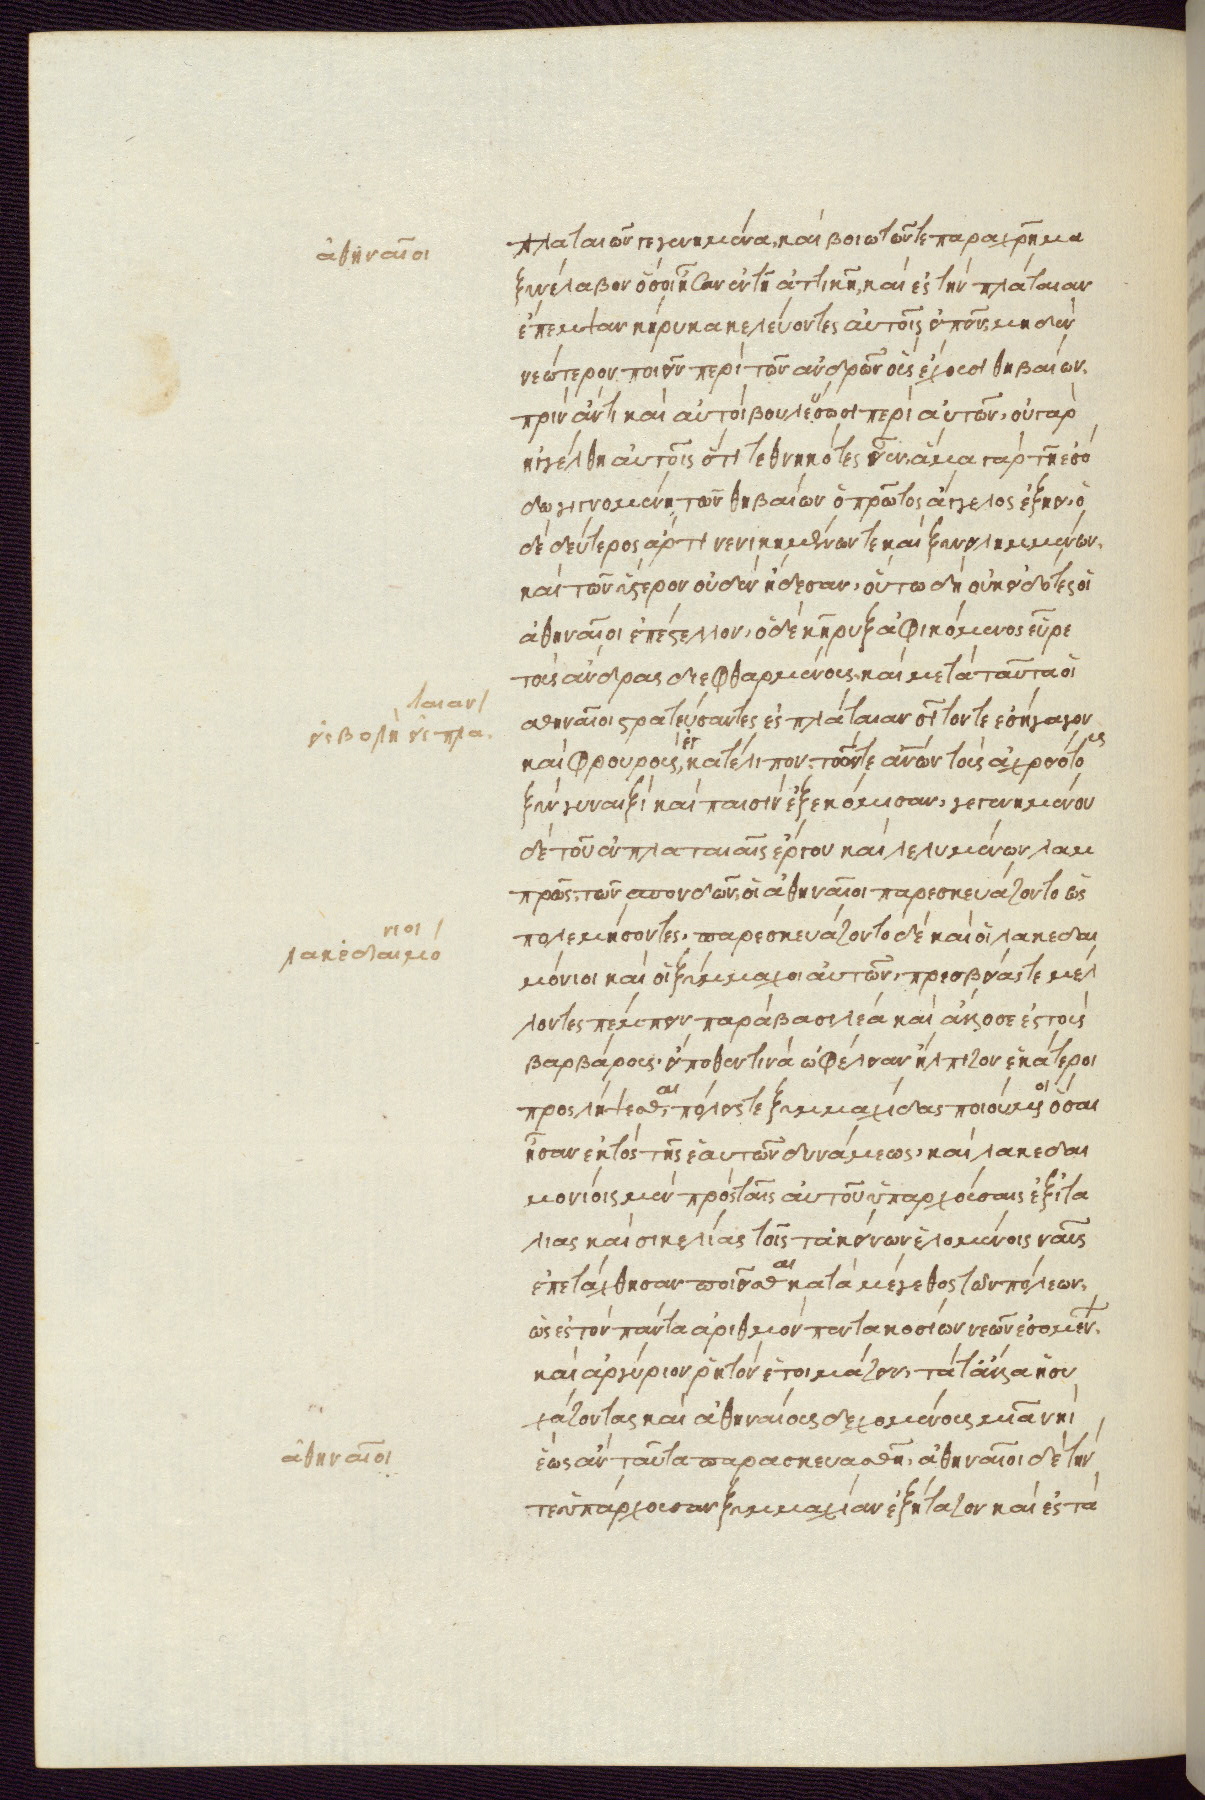 ἀθηναῖοι
πλαταιῶν γεγενημένα, καὶ βοιωτῶν τε παραχρῆμα
ξυνέλαβον ὅσοι ἦσαν ἐν τῆ ἀττικῆ, καὶ ἐς τὴν πλάταιαν
ἔπεμψαν κήρυκα κελεύοντες αὐτοῖς εἰπεῖν, μηδὲν
νεώτερον ποιεῖν περὶ τῶν ἀνδρῶν οὓς ἔχουσι θηβαίων,
πρὶν ἄν τι καὶ αὐτοὶ βουλεύσωσι περὶ αὐτῶν, οὐ γὰρ
ἠγγέλθη αὐτοῖς ὅτι τεθνηκότες εἶεν, ἅμα γὰρ τῆ ἐσό
δω γιγνομένη τῶν θηβαίων ὁ πρῶτος ἄγγελος ἐξήει, ὁ
δὲ δεύτερος ἄρτι νενικημένων τε καὶ ξυνειλημμένων,
καὶ τῶν ὕστερον οὐδὲν ἤδεσαν, οὕτω δὴ οὐκ εἰδότες οἱ
ἀθηναῖοι ἐπέστελλον, ὁ δὲ κῆρυξ ἀφικόμενος εὗρε
τοὺς ἄνδρας διεφθαρμένους, καὶ μετὰ ταῦτα οἱ
λαιαν
ἐσβολὴ εἰς πλα
ἀθηναῖοι στρατεύσαντες ἐς πλάταιαν σῖτόν τε ἐσήγαγον
καὶ φρουροὺς, κατέλιπον τῶν τε ἀνῶν τοὺς ἀχρειότους
ξὺν γυναιξὶ καὶ παισὶν ἐξεκόμισαν, γεγενημένου
δὲ τοῦ ἐν πλαταιαῖς ἔργου καὶ λελυμένων λαμ
πρῶς, τῶν σπονδῶν, οἱ ἀθηναῖοι παρεσκευάζοντο ὡς
νιοι
λακεδαιμό
πολεμήσοντες, παρεσκευάζοντο δὲ καὶ οἱ λακεδαι
μόνιοι καὶ οἱ ξύμμαχοι αὐτῶν, πρεσβείας τε μέλ
λοντες πέμπειν παρὰ βασιλέα καὶ ἄλλοσε ἐς τοὺς
βαρβάρους, εἴ ποθέν τινα ὠφέλειαν ἤλπιζον ἑκάτεροι
προσλήψεσθαι, πόλεις τε ξυμμαχίδας ποιούμενοι ὅσαι
ἦσαν ἐκτὸς τῆς ἑαυτῶν δυνάμεως, καὶ λακεδαι
μονίοις μὲν πρὸς ταῖς αὐτοῦ ὑπαρχούσαις ἐξ ἰτα
λίας καὶ σικελίας τοῖς τἀκείνων ἑλομένοις ναῦς
ἐπετάχθησαν ποιεῖσθαι κατὰ μέγεθος τῶν πόλεων,
ὡς ἐς τὸν πάντα ἀριθμὸν πεντακοσίων νεῶν ἐσομέν,
καὶ ἀργύριον ῥητὸν ἑτοιμάζειν, τά τ' ἄλλα ἡσυ
χάζοντας καὶ ἀθηναίους δεχομένους μιᾶ νηὶ
ἀθηναῖοι
ἕως ἂν ταῦτα παρασκευασθῆ, ἀθηναῖοι δὲ τήν
τε ὑπάρχουσαν ξυμμαχίαν ἐξήταζον καὶ ἐς τὰ